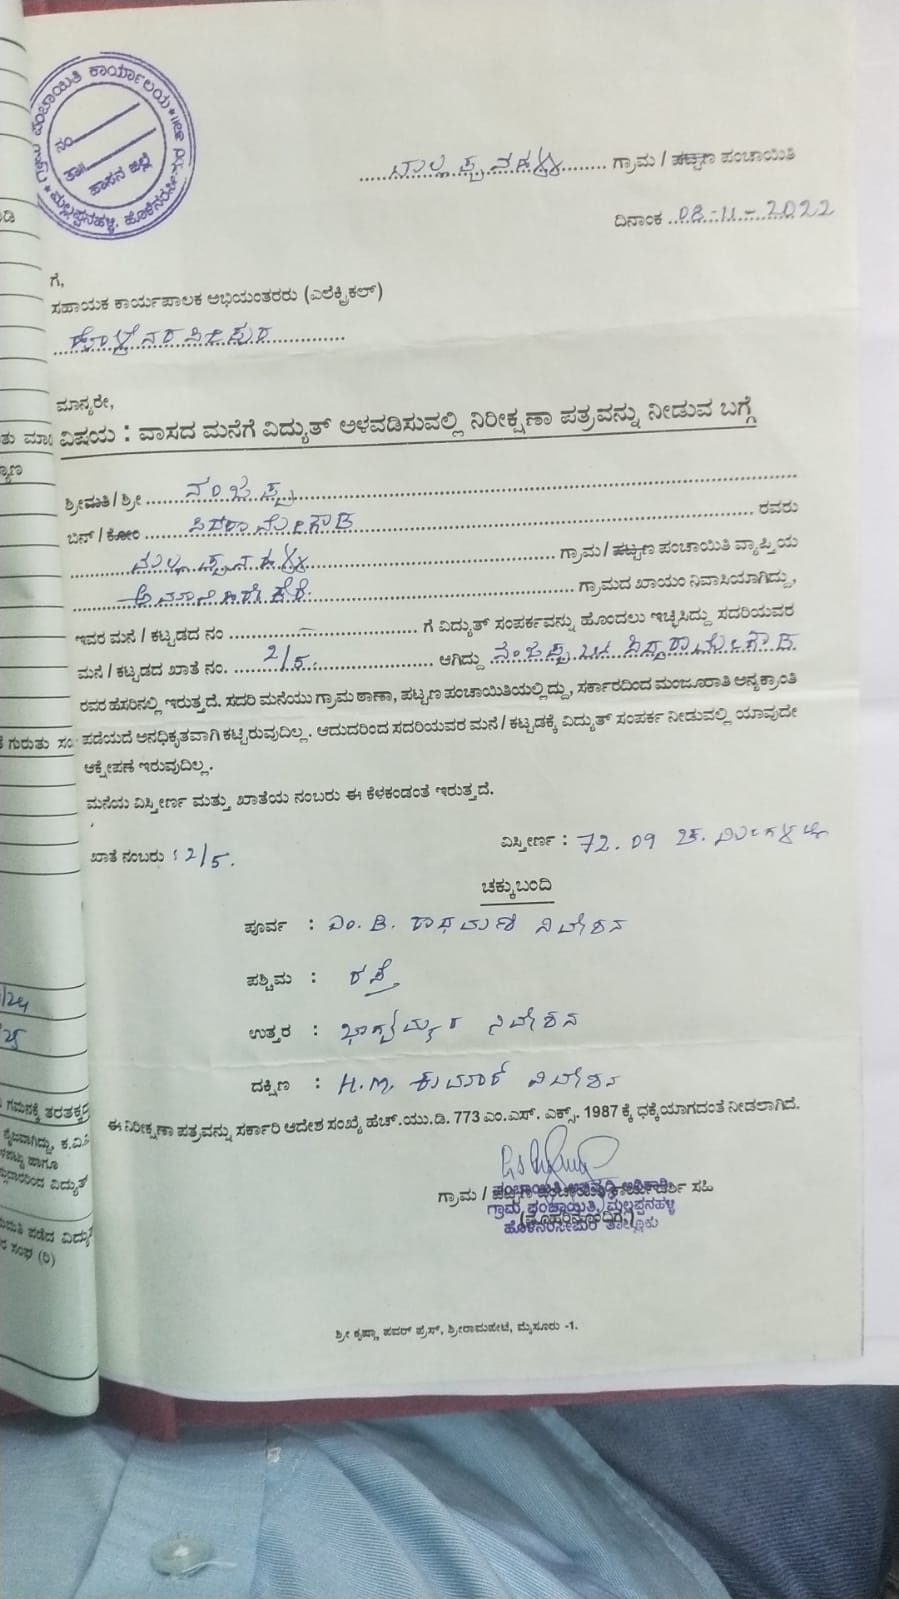 ಪಂಚಾಯಿತಿ ಕಾರ್ಯಾಲಯ
ನಂ
ತಾ||
ಹಾಸನ ಜಿಲ್ಲೆ
ಮಲ್ಲಪ್ಪನಹಳ್ಳಿ, ಹೊಳೆನರಸೀಪುರ
ಮಲ್ಲಪ್ಪನಹಳ್ಳಿ ಗ್ರಾಮ / ಪಟ್ಟಣ ಪಂಚಾಯಿತಿ
ದಿನಾಂಕ 08-11-2022
ಗೆ,
ಸಹಾಯಕ ಕಾರ್ಯಪಾಲಕ ಅಭಿಯಂತರರು (ಎಲೆಕ್ಟ್ರಿಕಲ್)
ಹೊಳೆನರಸೀಪುರ
ಮಾನ್ಯರೇ,
ವಿಷಯ : ವಾಸದ ಮನೆಗೆ ವಿದ್ಯುತ್ ಅಳವಡಿಸುವಲ್ಲಿ ನಿರೀಕ್ಷಣಾ ಪತ್ರವನ್ನು ನೀಡುವ ಬಗ್ಗೆ
ಶ್ರೀಮತಿ / ಶ್ರೀ ನಂಜಪ್ಪ
ಬಿನ್ / ಕೋಂ ಸಿದ್ದರಾಮೇಗೌಡ ರವರು
ಮಲ್ಲಪ್ಪನಹಳ್ಳಿ ಗ್ರಾಮ / ಪಟ್ಟಣ ಪಂಚಾಯಿತಿ ವ್ಯಾಪ್ತಿಯ
ಗ್ರಾಮದ ಖಾಯಂ ನಿವಾಸಿಯಾಗಿದ್ದು,
ಇವರ ಮನೆ / ಕಟ್ಟಡದ ನಂ - ಗೆ ವಿದ್ಯುತ್ ಸಂಪರ್ಕವನ್ನು ಹೊಂದಲು ಇಚ್ಛಿಸಿದ್ದು ಸದರಿಯವರ
ಮನೆ / ಕಟ್ಟಡದ ಖಾತೆ ನಂ. 2/5. ಆಗಿದ್ದು ನಂಜಪ್ಪ ಬಿನ್ ಸಿದ್ದರಾಮೇಗೌಡ
ರವರ ಹೆಸರಿನಲ್ಲಿ ಇರುತ್ತದೆ. ಸದರಿ ಮನೆಯು ಗ್ರಾಮ ಠಾಣಾ, ಪಟ್ಟಣ ಪಂಚಾಯಿತಿಯಲ್ಲಿದ್ದು, ಸರ್ಕಾರದಿಂದ ಮಂಜೂರಾತಿ ಅನ್ಯಕ್ರಾಂತಿ
ಪಡೆಯದೆ ಅನಧಿಕೃತವಾಗಿ ಕಟ್ಟಿರುವುದಿಲ್ಲ. ಆದುದರಿಂದ ಸದರಿಯವರ ಮನೆ / ಕಟ್ಟಡಕ್ಕೆ ವಿದ್ಯುತ್ ಸಂಪರ್ಕ ನೀಡುವಲ್ಲಿ ಯಾವುದೇ
ಆಕ್ಷೇಪಣೆ ಇರುವುದಿಲ್ಲ.
ಮನೆಯ ವಿಸ್ತೀರ್ಣ ಮತ್ತು ಖಾತೆಯ ನಂಬರು ಈ ಕೆಳಕಂಡಂತೆ ಇರುತ್ತದೆ.
ಖಾತೆ ನಂಬರು : 2/5. ವಿಸ್ತೀರ್ಣ : 72.09 ಚ.
ಚಕ್ಕುಬಂದಿ
ಪೂರ್ವ : ಎಂ.B. ರಾಧಮಣಿ ನಿವೇಶನ
ಪಶ್ಚಿಮ : ರಸ್ತೆ
ಉತ್ತರ : ನಿವೇಶನ
ದಕ್ಷಿಣ : H.M. ಕುಮಾರ್ ನಿವೇಶನ
ಈ ನಿರೀಕ್ಷಣಾ ಪತ್ರವನ್ನು ಸರ್ಕಾರಿ ಆದೇಶ ಸಂಖ್ಯೆ ಹೆಚ್.ಯು.ಡಿ. 773 ಎಂ.ಎಸ್. ಎಕ್ಸ್. 1987 ಕ್ಕೆ ಧಕ್ಕೆಯಾಗದಂತೆ ನೀಡಲಾಗಿದೆ.
ಪಂಚಾಯಿತಿ ಅಭಿವೃದ್ಧಿ ಅಧಿಕಾರಿ
ಗ್ರಾಮ / ಪಟ್ಟಣ ಪಂಚಾಯಿತಿ ಕಾರ್ಯದರ್ಶಿ ಸಹಿ
ಗ್ರಾಮ ಪಂಚಾಯಿತಿ, ಮಲ್ಲಪ್ಪನಹಳ್ಳಿ
(ಮೊಹರಿನೊಂದಿಗೆ)
ಹೊಳೆನರಸೀಪುರ ತಾಲ್ಲೂಕು
ಶ್ರೀ ಕೃಷ್ಣಾ ಪವರ್ ಪ್ರೆಸ್, ಶ್ರೀರಾಮಪೇಟೆ, ಮೈಸೂರು -1.